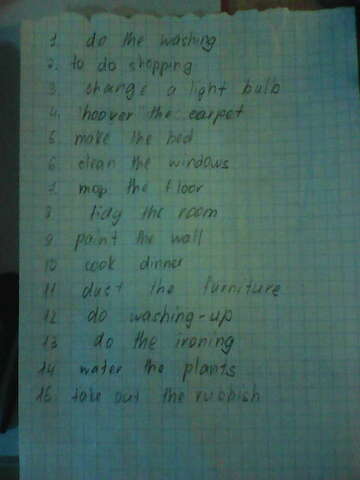 1. do the washing
2. to do shopping
3. change a light bulb
4. hoover the carpet
5. make the bed
6. clean the windows
7. mop the floor
8. tidy the room
9. paint the wall
10. cook dinner
11. dust the furniture
12. do washing-up
13. do the ironing
14. water the plants
15. take out the rubbish